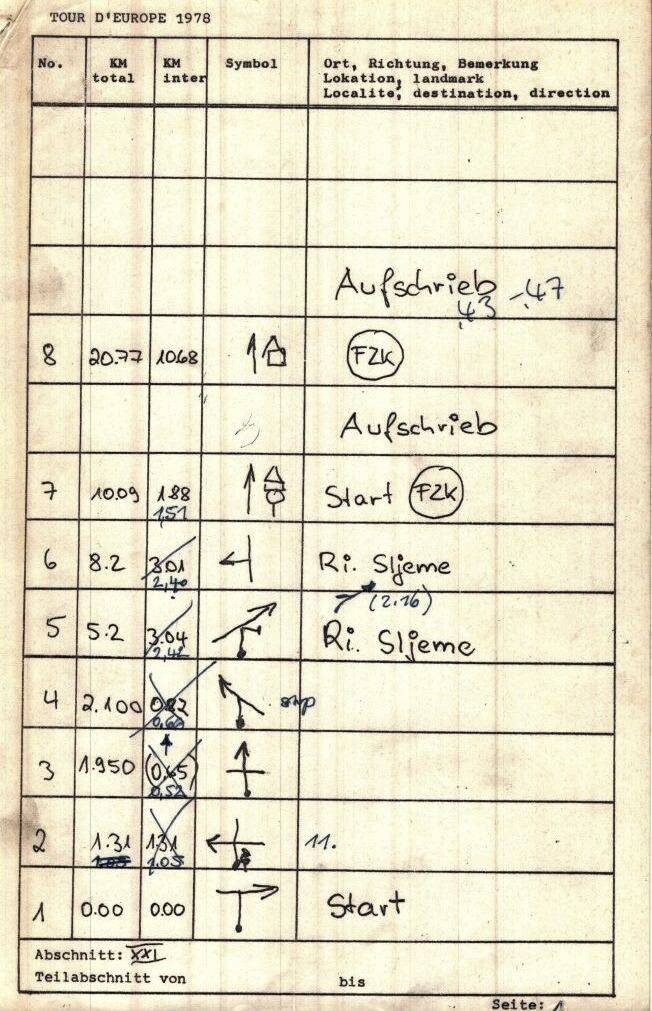 TOUR D'EUROPE 1978
No. KM total KM inter Symbol Ort, Richtung, Bemerkung
Lokation, landmark
Localite, destination, direction
Aufschrieb
,43 -,47
8 20.77 10.68 FZK
Aufschrieb
7 10.09 1.88 Start FZK
1,51
6 8.2 3.01 Ri. Sljeme
2,40
(2.16)
5 5.2 3.04 Ri. Sljeme
2,42
4 2.100
3 1.950 (0.65)
0,52
2 1.31 1.31 11.
1.05 1.05
1 0.00 0.00 Start
Abschnitt: XXI
Teilabschnitt von bis
Seite: 1